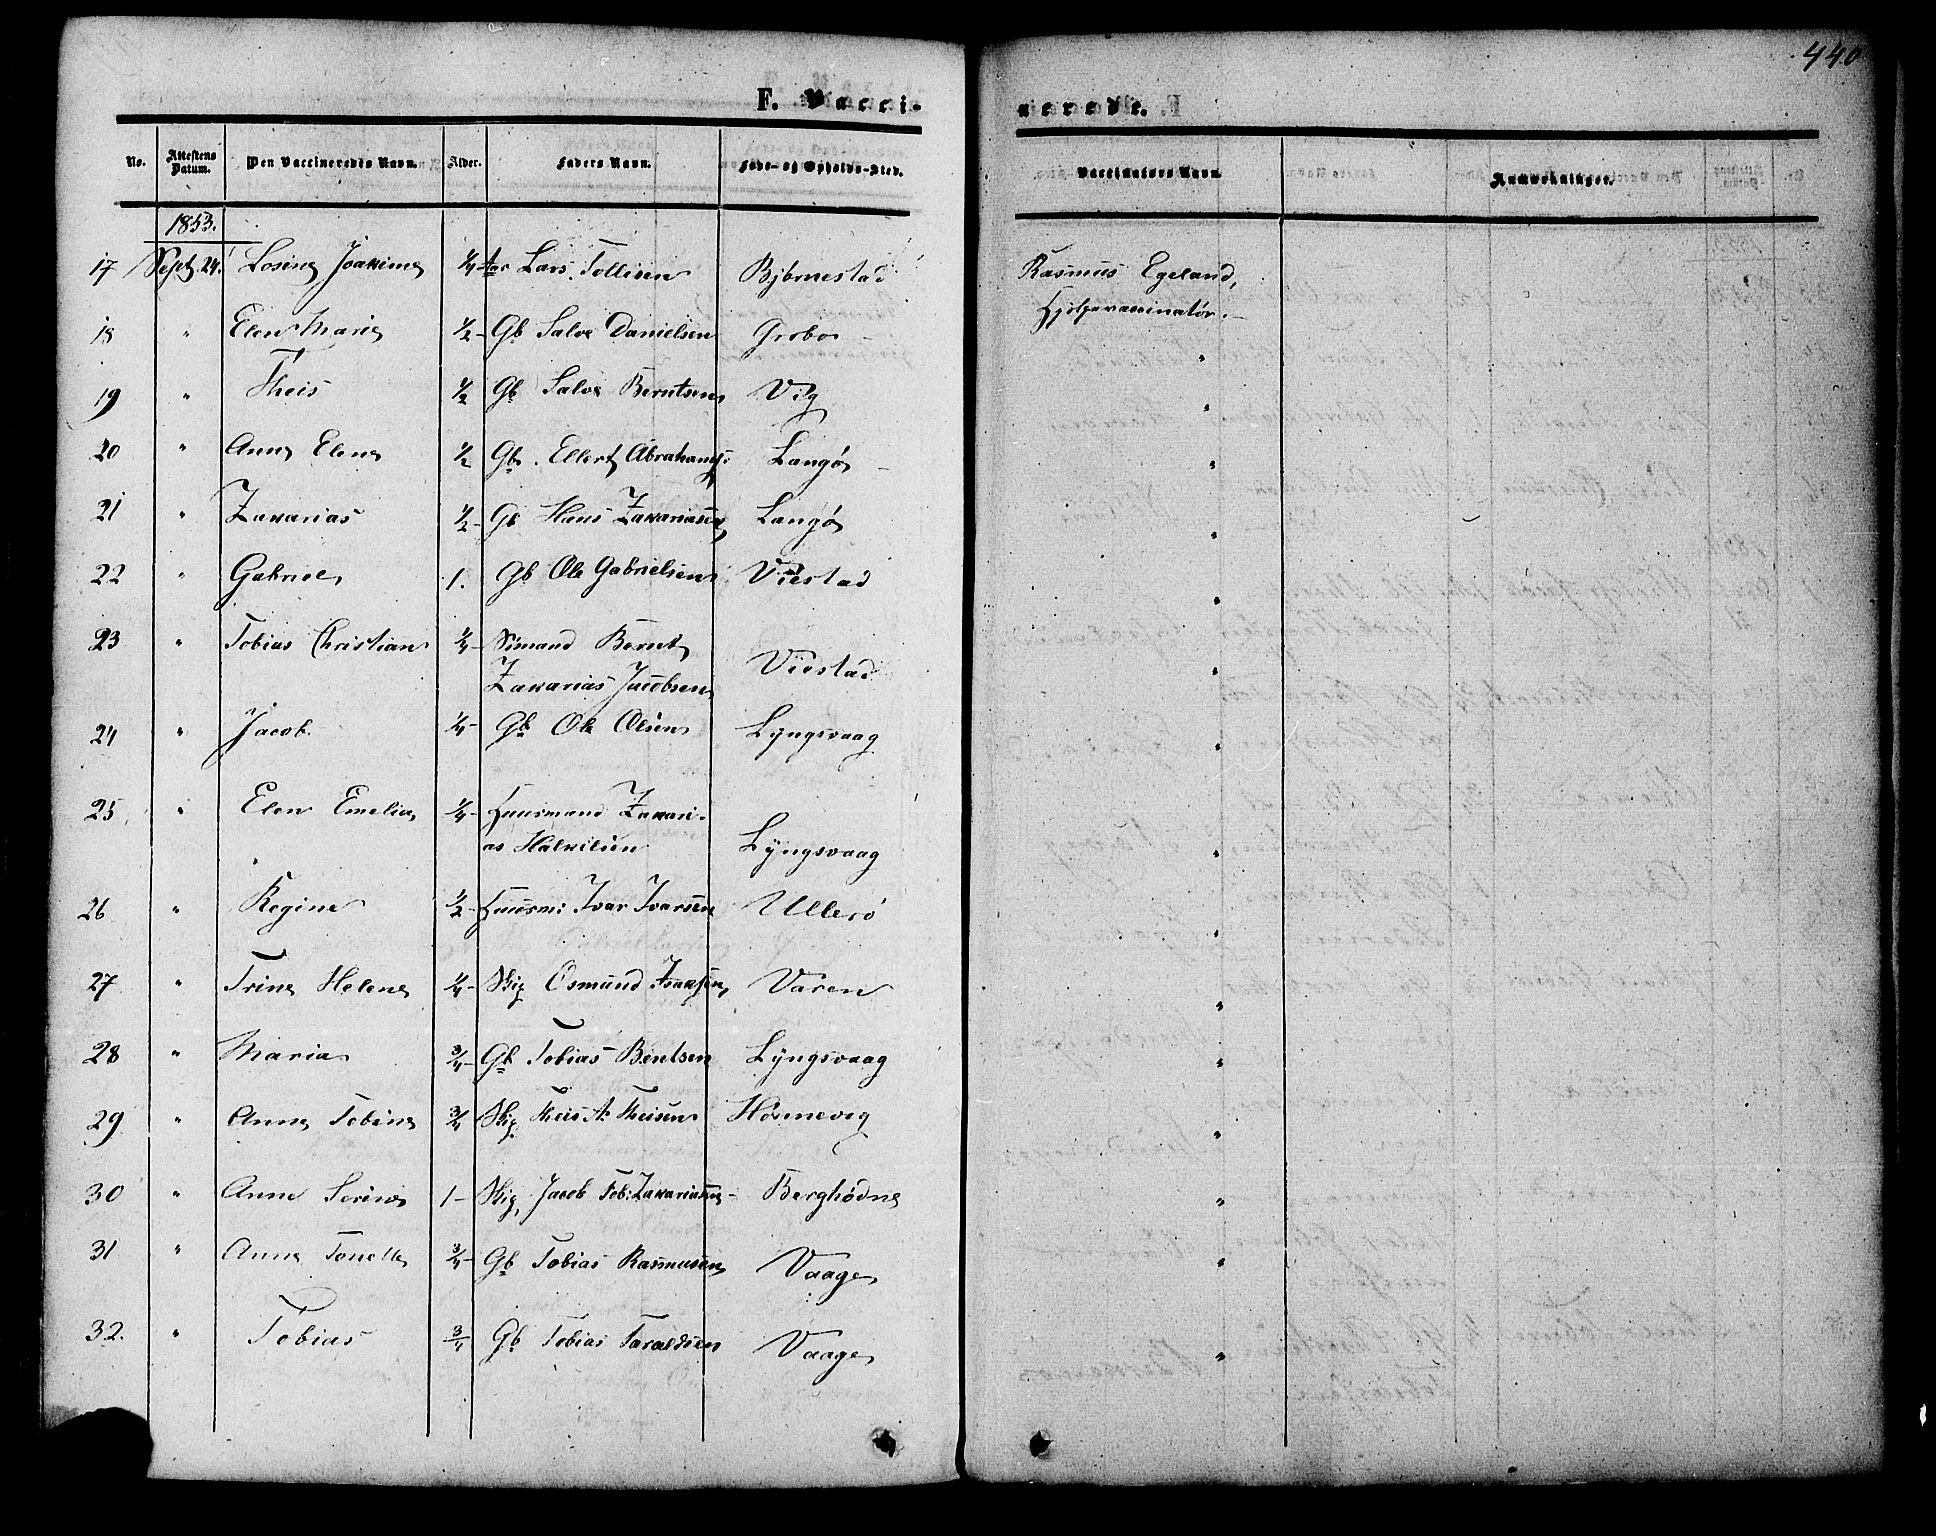 440
F. Vaccinerede.
No. Attestens Datum. Den Vaccineredes Navn. Alder. Faders Navn. Føde- og Opholds-Sted. Vaccinatørs Navn. Anmærkninger.
1853.
17 Sept. 24. Losine Joakime 1/4 Aar Lars Tollisen Bjørnestad Rasmus Egeland,
Hjelpevaxinatør.
18 " Elen Marie 1/2 - Gb Salve Danielsen Grobo - "
19 " Theis 1/2 Gb Salve Berntsen Vig "
20 " Anne Elene 1/2 Gb. Ellert Abrahams: Langø - "
21 " Zakarias 1/2 - Gb Hans Zakariassen Langø "
22 " Gabriel 1. Gb Ole Gabrielsen Viestad "
23 " Tobias Christian 1/4 - Bernt
Zakarias Jacobsen Viestad "
24 " Jacob 1/4 - Gb Ole Olsen Lyngsvaag "
25 " Elen Emelia 1/4 - Huusmand Zakari-
as Lyngsvaag "
26 " Regine 1/2 - Huusm: Ivar Ivarsen Ullerø "
27 " Trine Helene 1/4 - Osmund Isaksen Varen "
28 " Maria 3/4 - Gb Tobias Bentsen Lyngsvaag "
29 " Anne Tobine 3/4 Theis A: Theisen Hønnevig "
30 " Anne Serine 1 - Jacob Tob: Zakariassen - Berghødne "
31 " Anne Tonette 3/4 - Gb Tobias Rasmusen Vaage "
32. " Tobias 3/4 Gb Tobias Taraldsen Vaage "